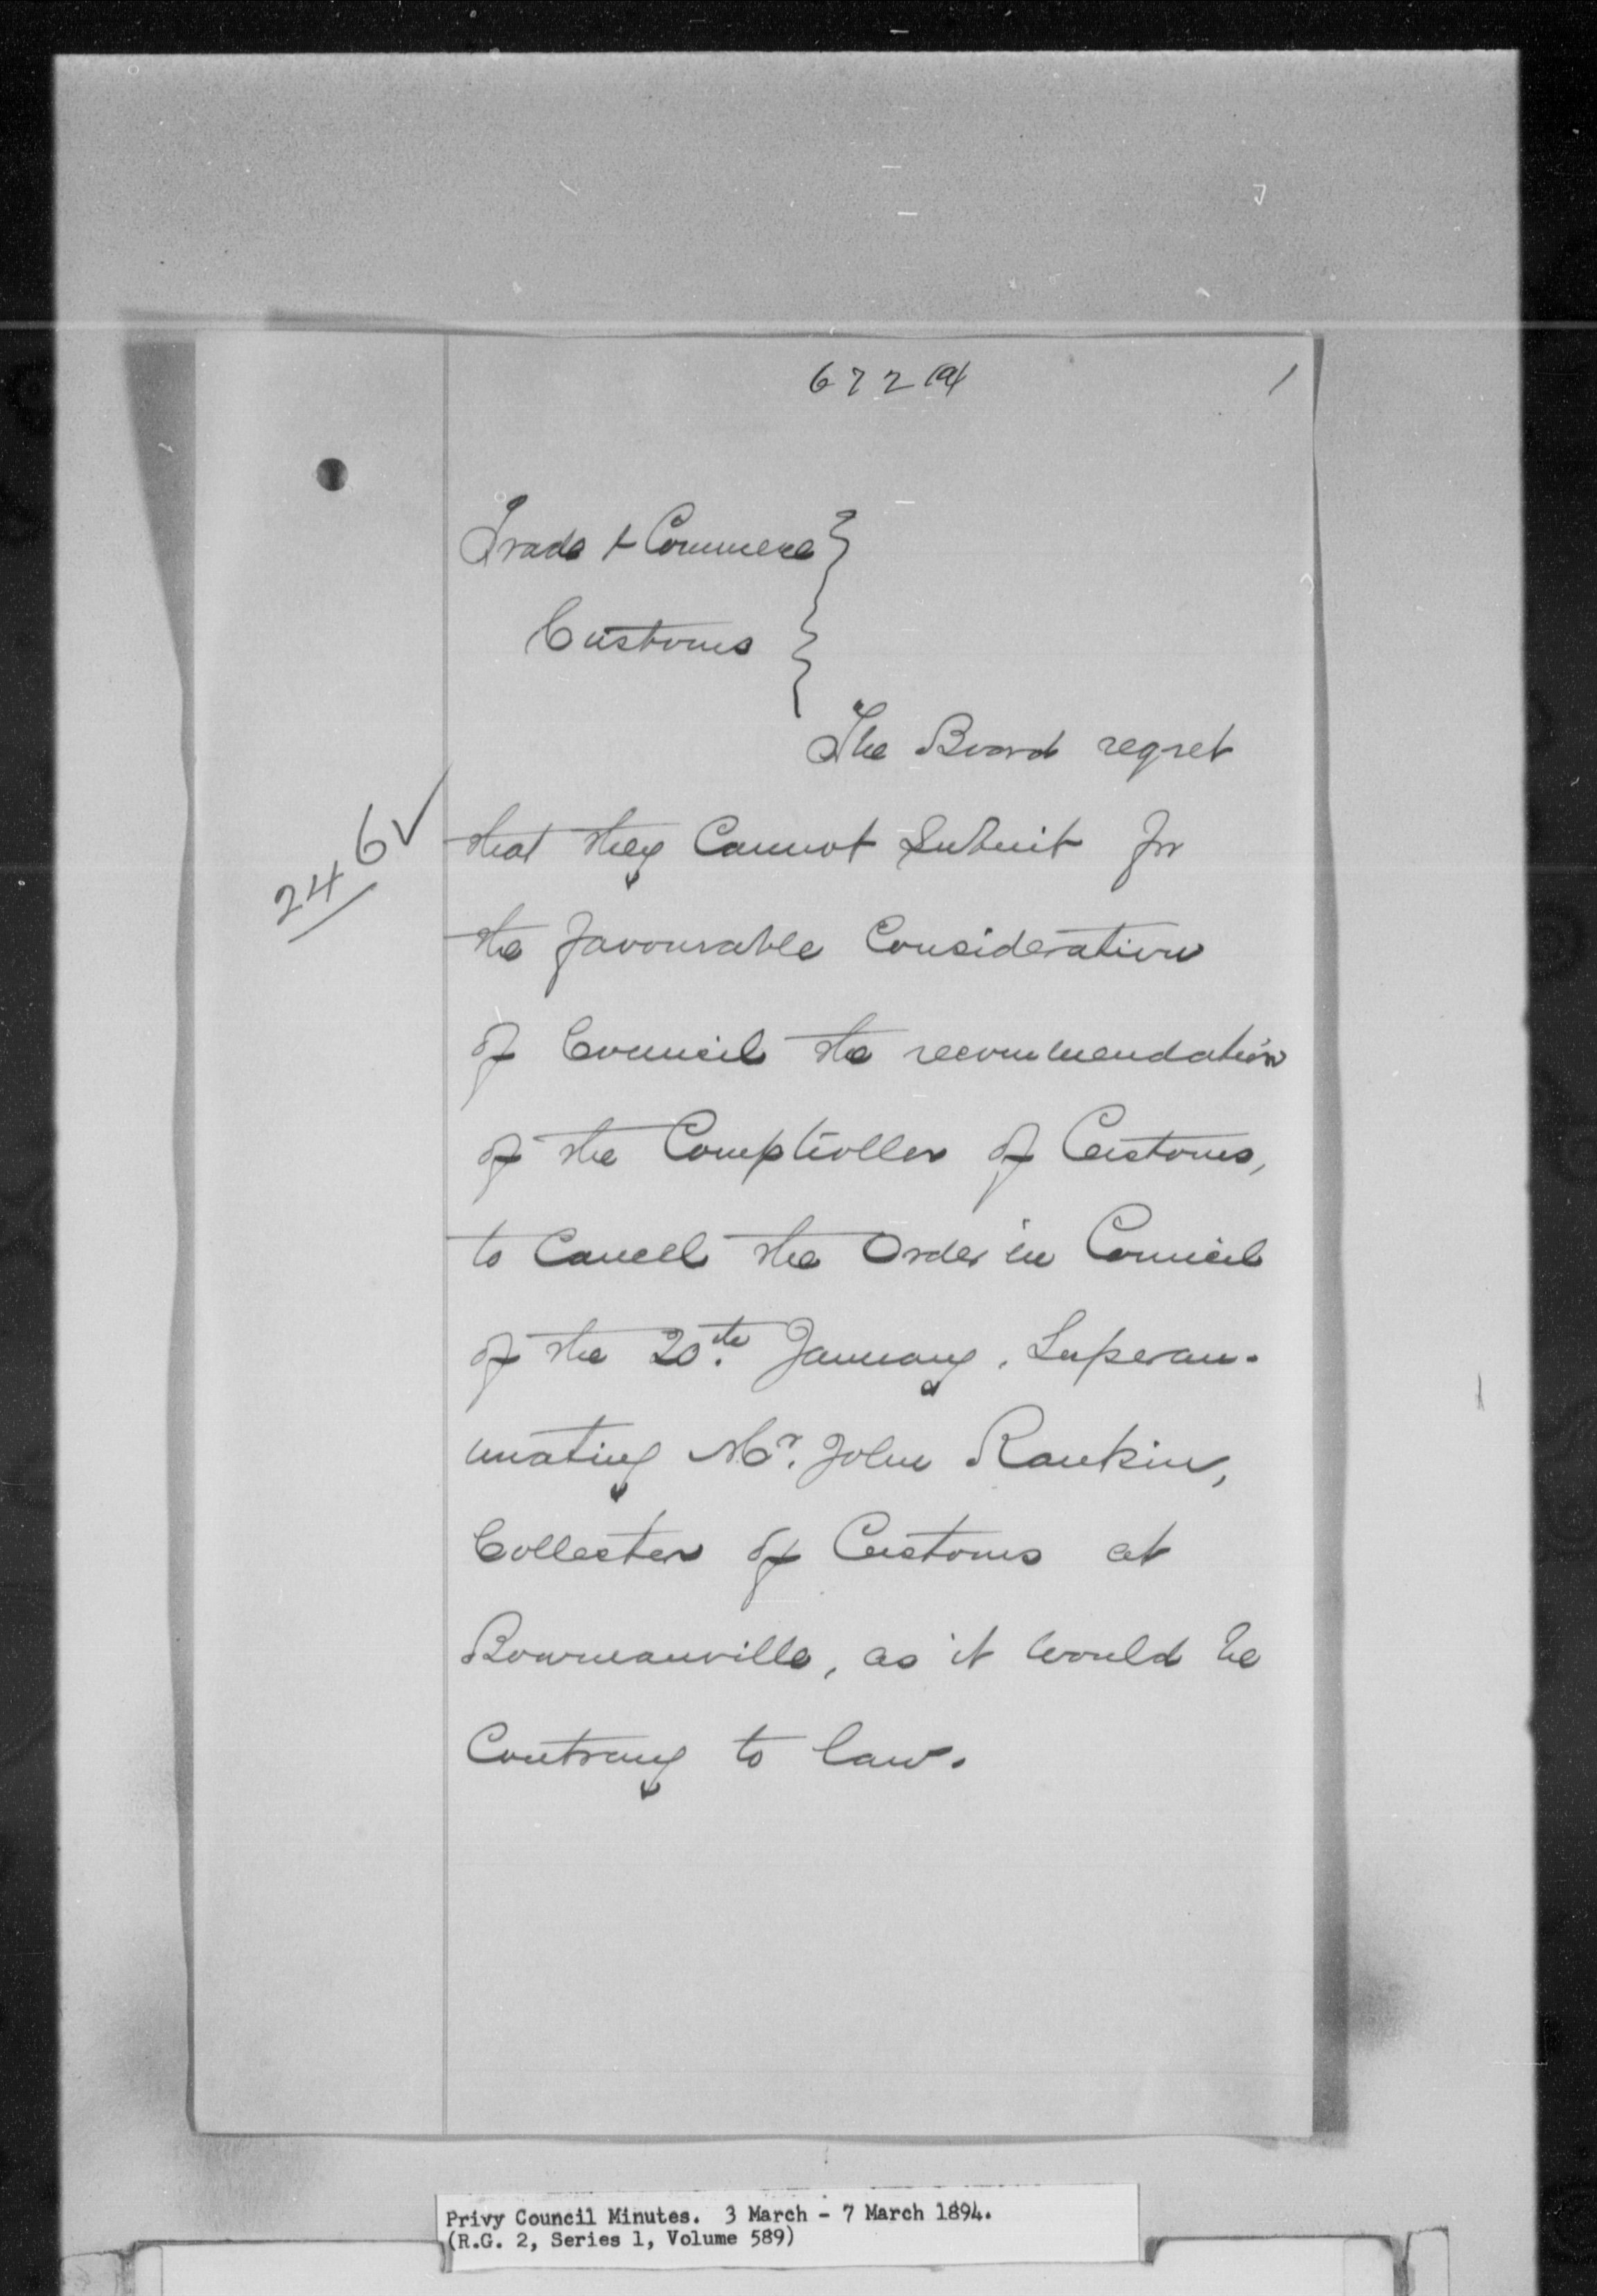 672(a) 1
Trade & Commerce }
Customs }
The Board regret
246✓
that they Cannot Submit for
the favourable Consideration
of Council the recommendation
of the Comptroller of Customs,
to Cancel the Order in Council
of the 20th January, Superan-
nuating Mr. John Rankin,
Collector of Customs at
Bowmanville, as it would be
Contrary to law.
Privy Council Minutes. 3 March - 7 March 1894.
(R.G. 2, Series 1, Volume 589)